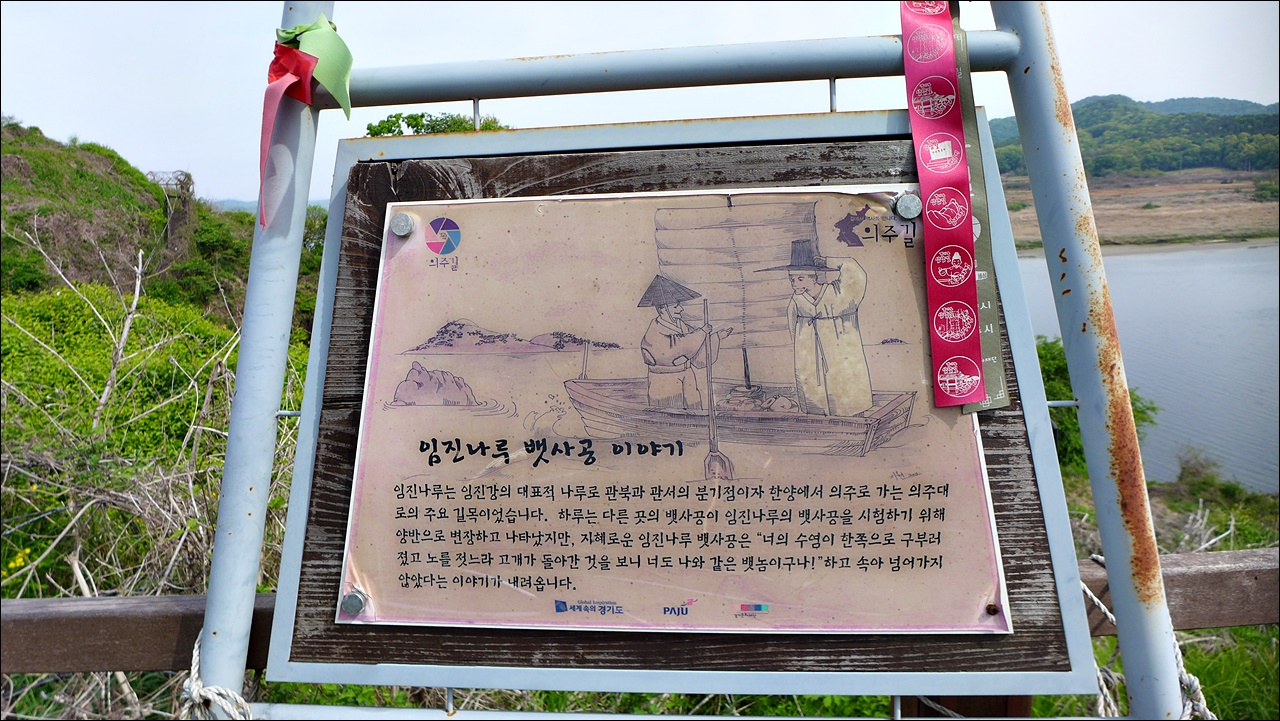 의주길
의주길
임진나루 뱃사공 이야기
임진나루는 임진강의 대표적 나루로 관북과 관서의 분기점이자 한양에서 의주로 가는 의주대
로의 주요 길목이었습니다. 하루는 다른 곳의 뱃사공이 임진나루의 뱃사공을 시험하기 위해
양반으로 변장하고 나타났지만, 지혜로운 임진나루 뱃사공은 "너의 수염이 한쪽으로 구부러
졌고 노를 젓느라 고개가 돌아간 것을 보니 너도 나와 같은 뱃놈이구나!"하고 속아 넘어가지
않았다는 이야기가 내려옵니다.
Global Inspiration
세계속의 경기도
PAJU